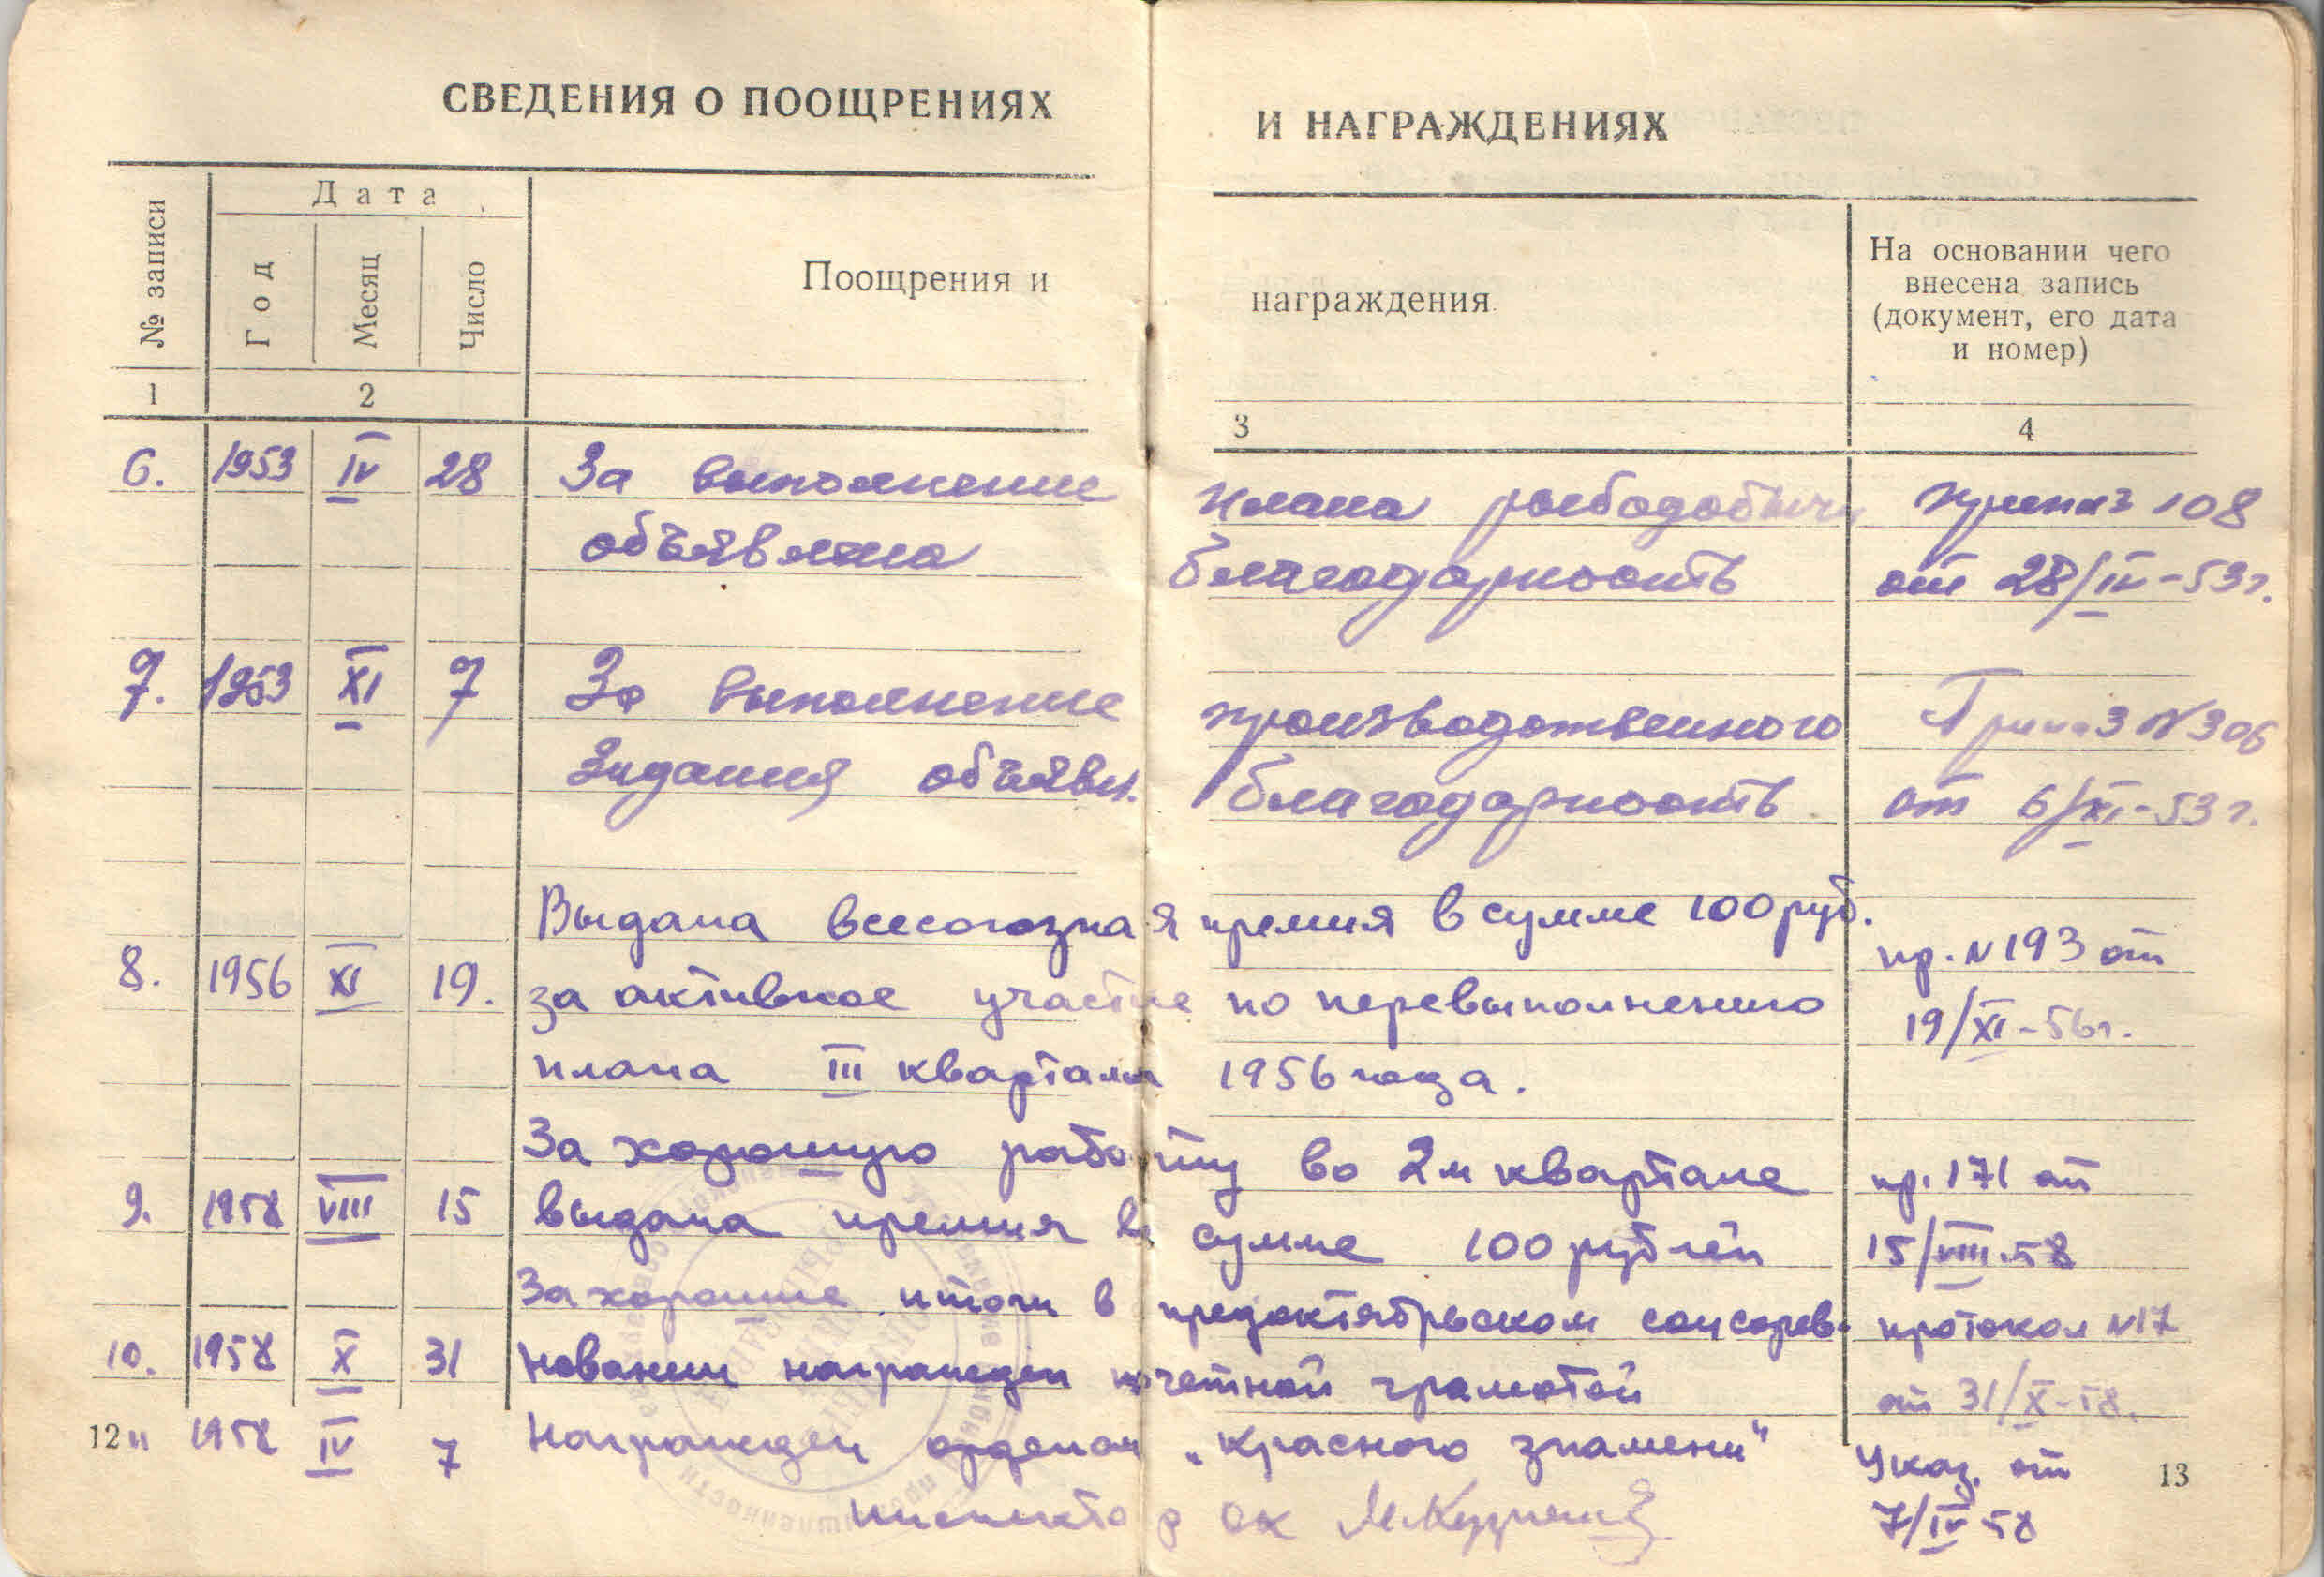 СВЕДЕНИЯ О ПООЩРЕНИЯХ И НАГРАЖДЕНИЯХ
№ записи
Дата
Год
Месяц
Число
Поощрения и награждения
На основании чего
внесена запись
(документ, его дата
и номер)
1 2 3 4
6. 1953 IV 28 За выполнение плана рыбодобычи приказ 108
объявлена благодарность от 28/IV-53г.
7. 1953 XI 7 За выполнение производственного Приказ N306
Задания объявл. благодарность от 6/XI-53г.
Выдана всесоюзная премия в сумме 100 руб.
8. 1956 XI 19. за активное участие по перевыполнению пр. N193 от
плана III квартала 1956 года. 19/XI-56г.
За хорошую работу во 2м квартале пр. 171 от
9. 1958 VIII 15 выдана премия в сумме 100 рублей 15/VIII-58
За хорошие итоги в предоктябрьском соцсорев- протокол N17
10. 1958 X 31 новании награжден почетной грамотой от 31/X-58.
12 11 1958 IV 7 Награжден орденом „Красного знамени" Указ. от
7/IV-58
13
инспектор ок М.Кузнец